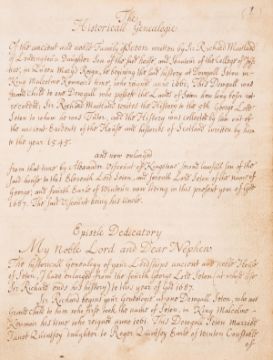 The
Historicall Genealogie
Of the ancient and noble Family of Seton written by Sir Richard Maitland
of Ledingtoun Daughters Son of the said house, and Senator of the Colledge of Jus-
tice, in Queen Maries Reign, he begining the said history at Dougall Seton in
King Malcolme Kenmures time, who reigned anno 1061. This Dougall was
Grand Child to one Dougall who possest the Lands of Seton
Sir Richard Maitland writes the History to the 9th George Lord
Seton to whom he was Tutor, and the History was collected by him out of
the ancient Evidents of the House and histories of Scotland written by him
to the year 1545.
and now enlarged
from that time by Alexander Viscount of Kingstone second lawfull son of the
said house to this Eleventh Lord Seton, and seventh Lord Seton of the name of
George, and fourth Earle of Wintoun now living in this present year of God
1687. The said Viscount being his Uncle.
Epistle Dedicatory
My Noble Lord and Dear Nephew
The Historicall Genealogy of your Lordships ancient and noble House
of Seton, I have enlarged from the fourth George Lord Seton (at whose life
Sir Richard ends his history) to this year of God 1687.
Sir Richard begins your Genealogie at one Dougall Seton, who was
grand child to him who first took the name of Seton, in King Malcolme
Kenmores his time who reigned anno 1061. This Dougall Seton married
Janet Quincey daughter to Roger Quincey Earle of Winton Constable
of